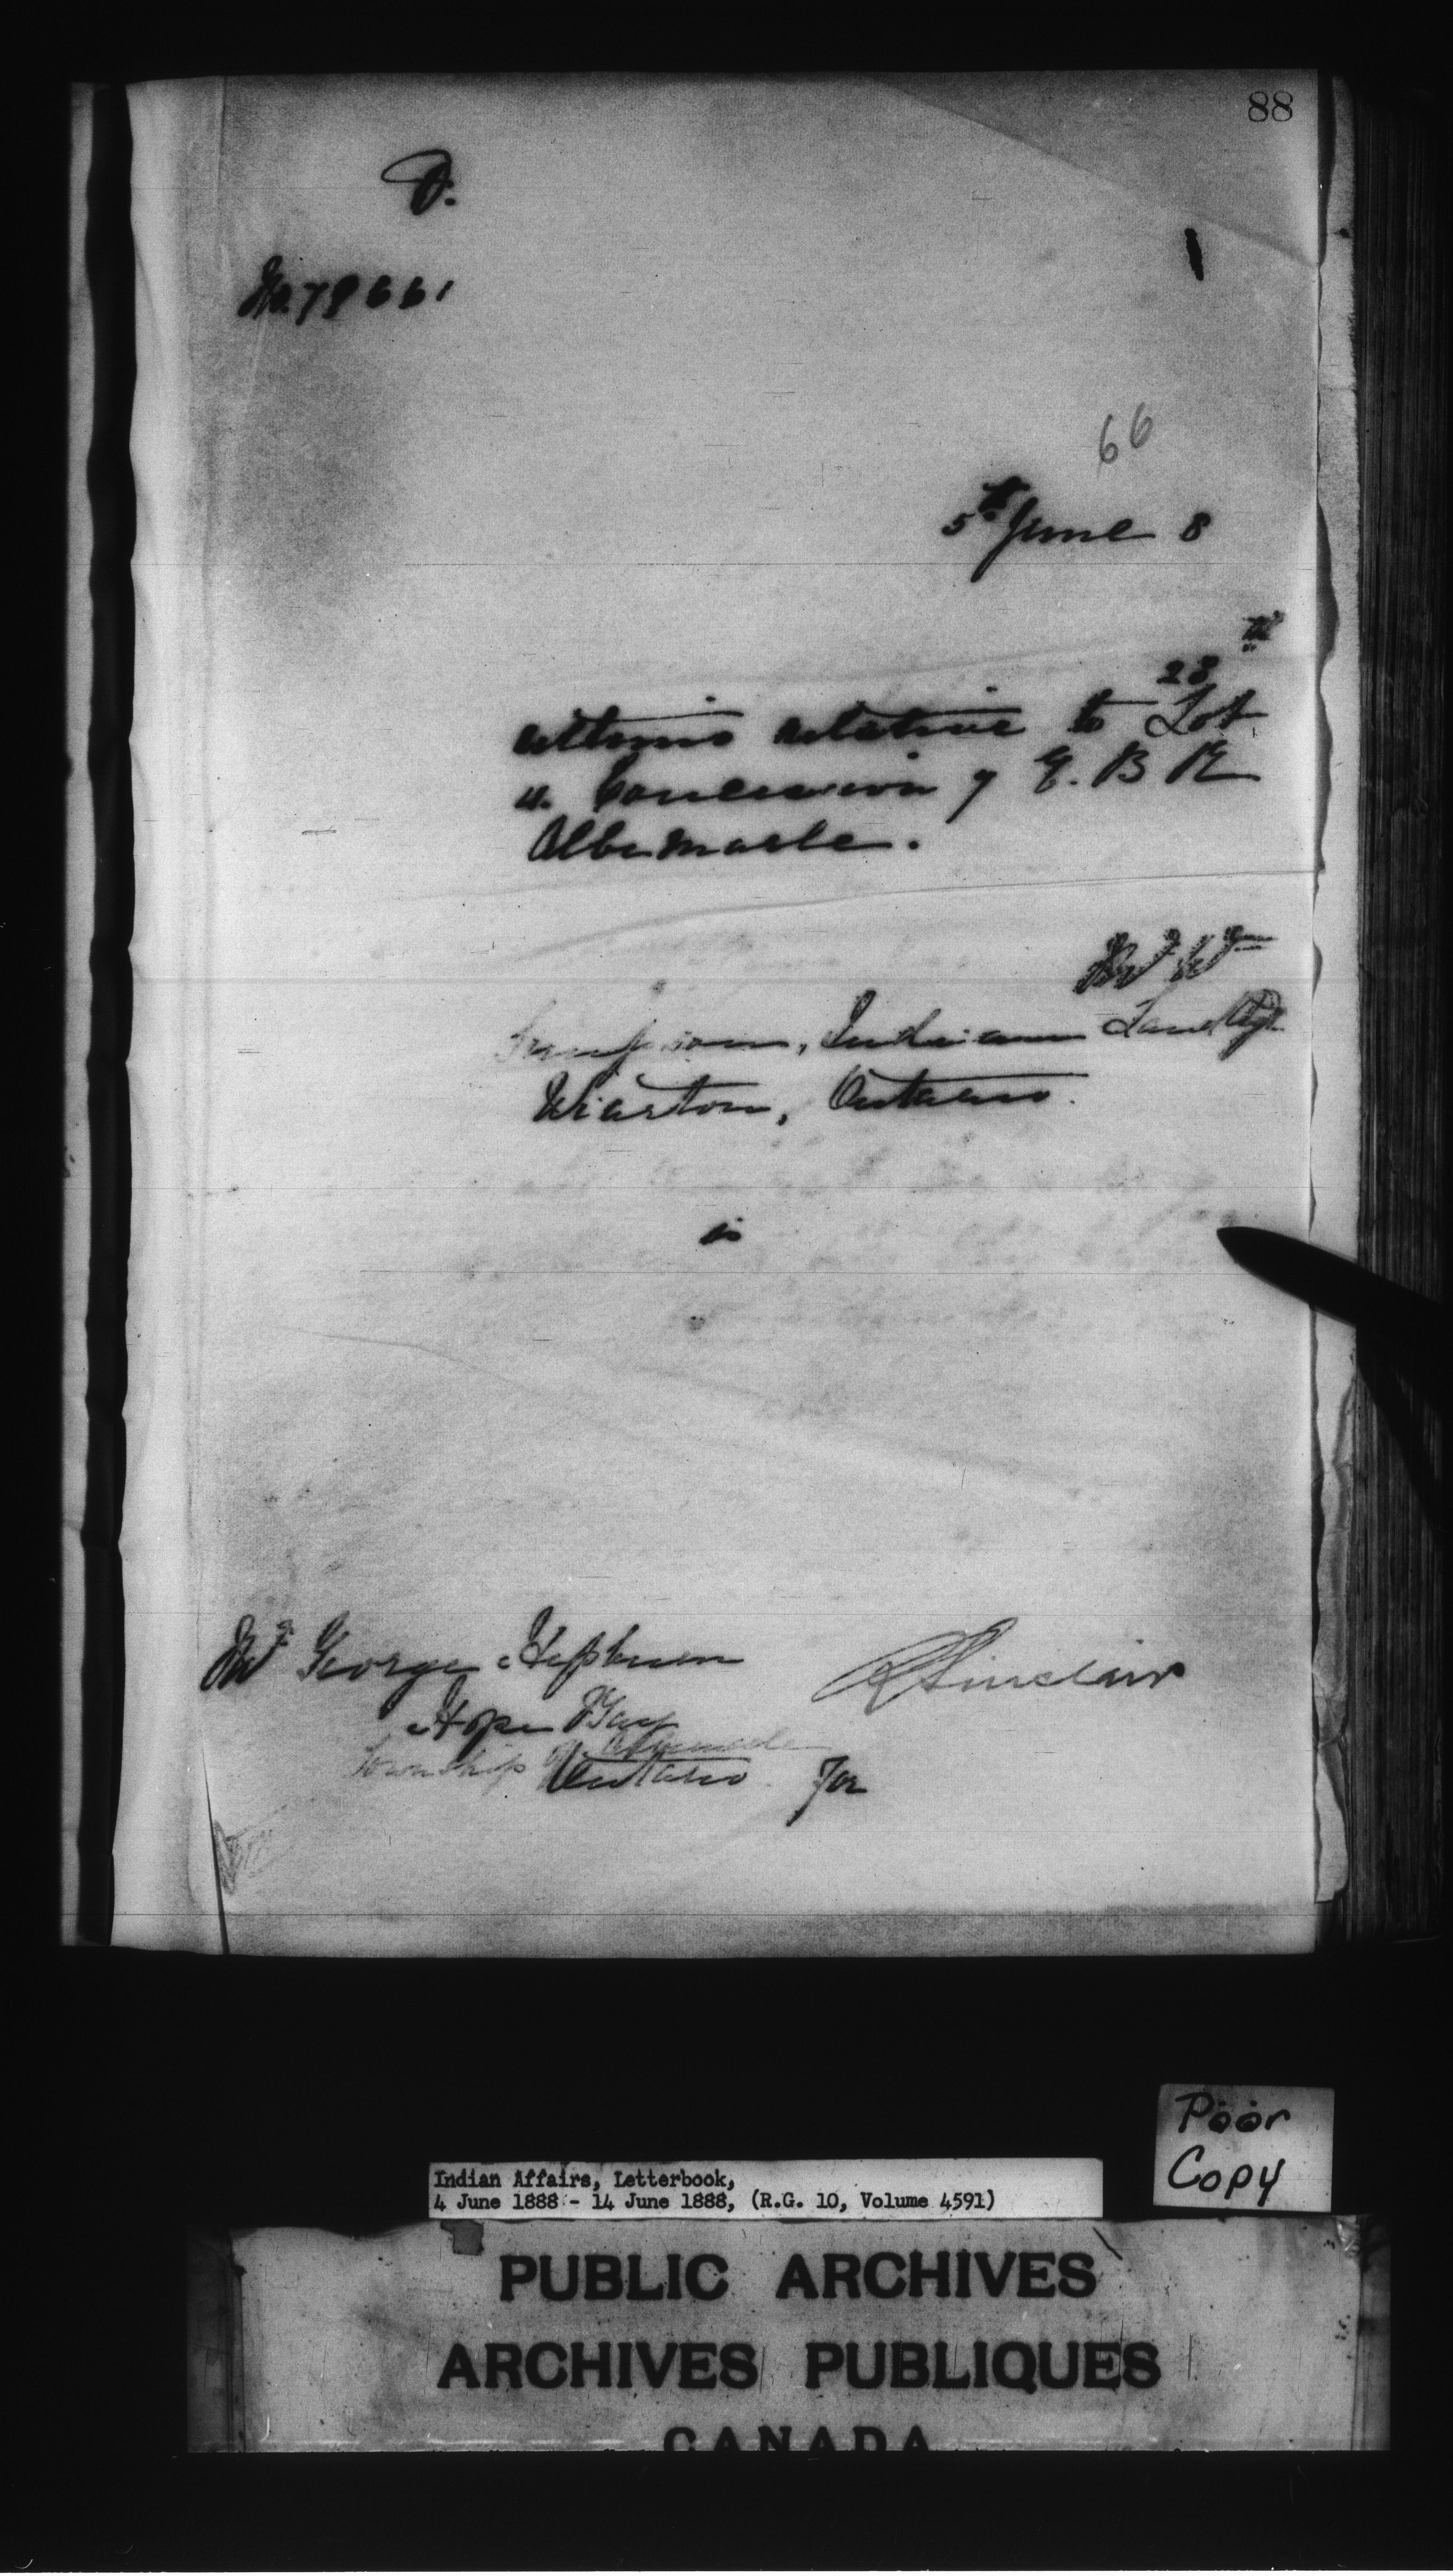 88
D.
No. 79661
66
5th June 8
28th
ultimo relative to Lot
4. Concession 7 E. B R
Albemarle.
Mr W
Simpson, Indian Land Agt
Wiarton, Ontario.
is
Mr George Hepburn
R Sinclair
Hope Bay
Township of Albemarle
Ontario. For
Poor
Copy
Indian Affairs, Letterbook,
4 June 1888 - 14 June 1888, (R.G. 10, Volume 4591)
PUBLIC ARCHIVES
ARCHIVES PUBLIQUES
CANADA